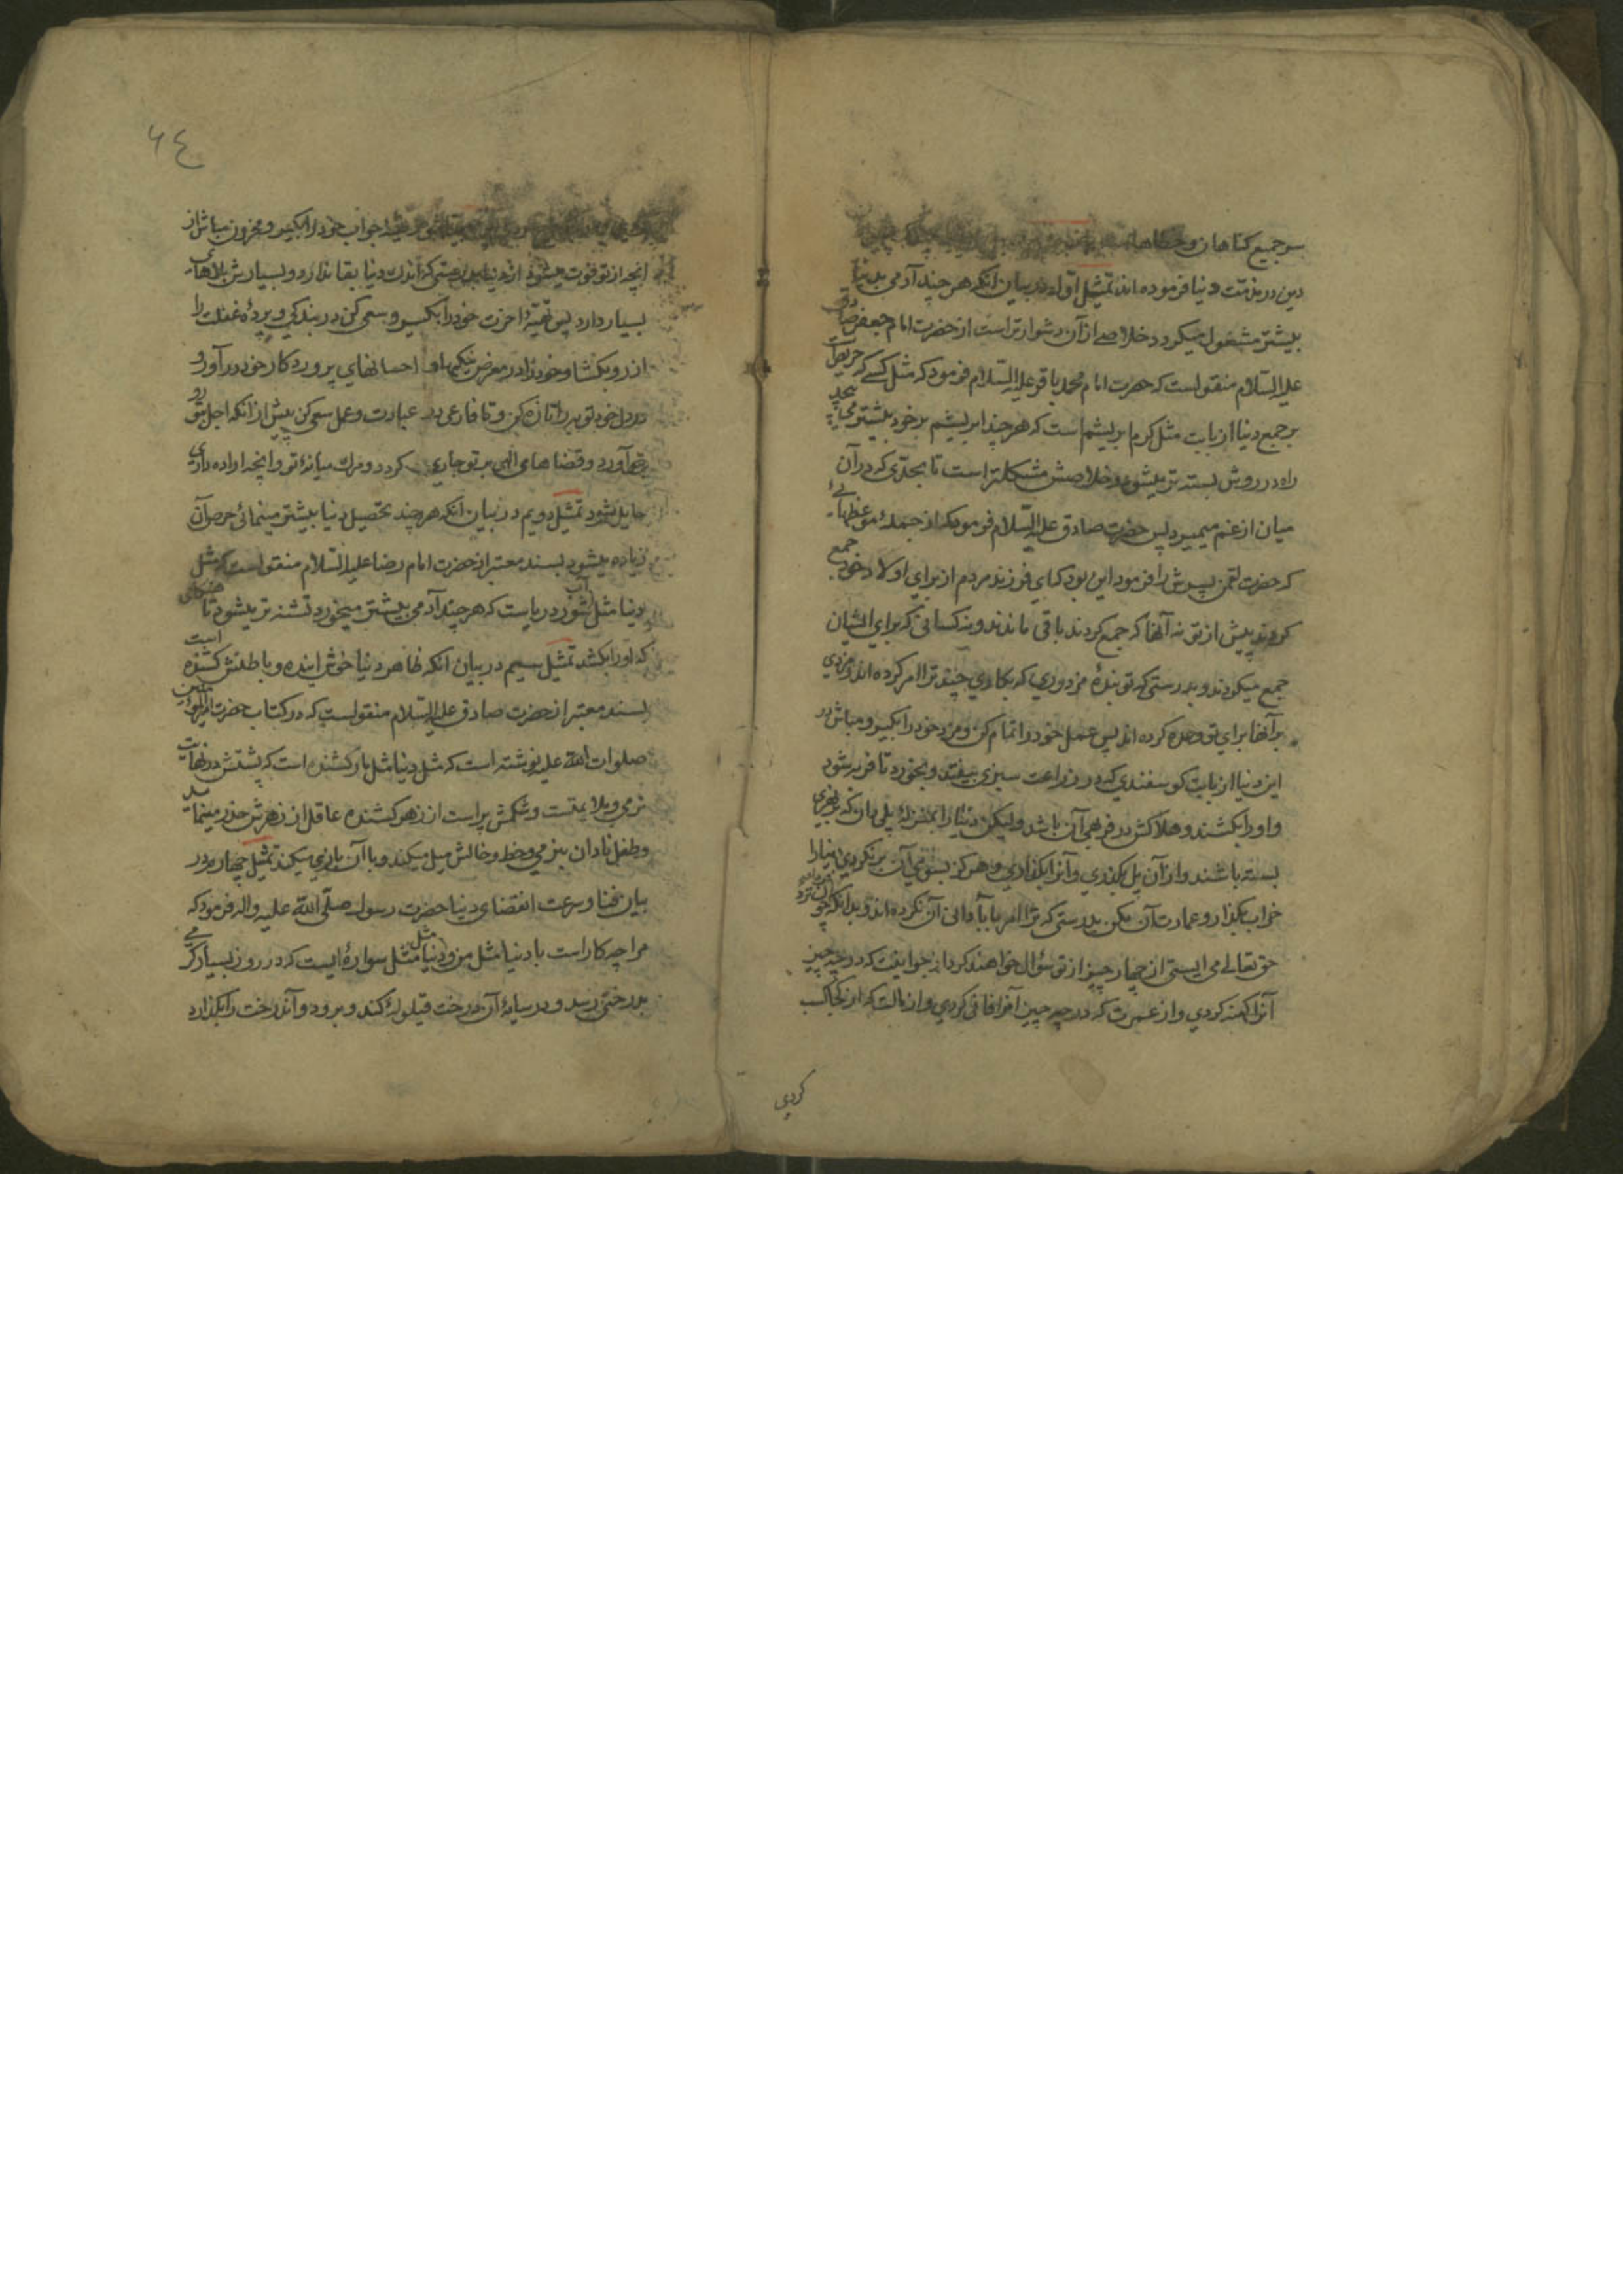 سر جمیع کناهان و خطاها
دین در مذمّت دنیا فرموده اند تمثیل اوّل در بیان انکه هر چند آدمی بدنیا
بیشتر مشغول میکردد خلاصی از آن دشوارتر است از حضرت امام جعفر صادق
علیه السّلام منقولست که حضرت امام محمد باقر علیه السّلام فرمود که مثل کسے که حریص است
بر جمع دنیا از بابت مثل کرم ابریشم است که هر چند ابریشم بر خود بیشتر می پیچد
راه در رویش بسته تر میشود و خلاصش مشکلتر است تا بحدّی که در آن
میان از غم میمیرد پس حضرت صادق علیه السّلام فرمود که از جمله موعظهائے
که حضرت لقمن پسرش را فرمود این بود که ای فرزند مردم از برای اولاد خود جمع
کردند پیش از تو نه آنها که جمع کردند باقی ماندند و نه کسانی که برای ایشان
جمع میکردند و بدرستی که تو بندۀ مزدوری که بکاری چند ترا امر کرده اند و مزدی
بر آنها برای تو وعده کرده اند پس عمل خود را تمام کن و مزد خود را بکیر و مباش در
این دنیا از بابت کوسفندی که در زراعت سبزی بیفتد و بخورد تا فربه شود
و او را بکشند و هلاکش در فربهی آن باشد ولیکن دنیا را بمنزلۀ پلی دان که بر نهری
بسته باشند و از آن پل بکذری و آنرا بکذاری و هرکز بسوی آن برنکردی دنیا را
خراب بکذار و عمارت آن مکن بدرستی که ترا امر بآبادانی آن نکرده اند و بدانکه چون نزد
حق تعالے می ایستی از چهار چیز از تو سؤال خواهند کرد از جوانیت که در چه چیز
آنرا کهنه کردی و از عمرت که در چه چیز آنرا فانی کردی و از مالت که از کجا کسب
کردی
٦٤
جواب خود را بکیر و محزون مباش از
انچه از تو فوت میشود از دنیا بدرستی که اندك دنیا بقا ندارد و بسیارش بلاهای
بسیار دارد پس تهیّۀ آخرت خود را بکیر و سعی کن در بندکی و پردۀ غفلت را
از رو بکشا و خود را در معرض نیکیها و احسانهای پروردکار خود در آور و
در دل خود توبه را تازه کن و تا فارغی در عبادت و عمل سعی کن پیش از انکه اجل بتو رو
آورد و قضاهای الهی بر تو جاری کردد و مرك میانۀ تو و انچه اراده داری
حایل شود تمثیل دویم در بیان انکه هر چند تحصیل دنیا بیشتر مینمائی حرص آن
زیاده میشود بسند معتبر از حضرت امام رضا علیه السّلام منقولست که مثل
دنیا مثل آب شور دریاست که هر چند آدمی بیشتر میخورد تشنه تر میشود تا
که او را بکشد تمثیل سیم در بیان انکه ظاهر دنیا خوش آینده و باطنش کشنده است
بسند معتبر از حضرت صادق علیه السّلام منقولست که در کتاب حضرت امیر المؤمنین
صلوات اللّه علیه نوشته است که مثل دنیا مثل مار کشنده است که پشتش در نهایت
نرمی و ملایمتست و شکمش پر است از زهر کشنده عاقل از زهرش حذر مینماید
و طفل نادان بنرمی و خط و خالش میل میکند و با آن بازی میکند تمثیل چهارم در
بیان فنا و سرعت انقضای دنیا حضرت رسول صلّی اللّه علیه و اله فرمود که
مرا چه کار است با دنیا مثل من و دنیا مثل سوارۀ ایست که در روز بسیار کرمے
بدرختی رسد و در سایۀ آن درخت قیلولۀ کند و برود و آن درخت را بکذارد